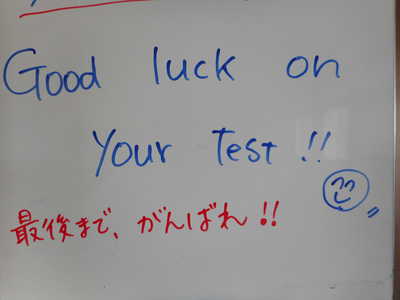 Good luck on
Your Test !!
最後まで、がんばれ !!